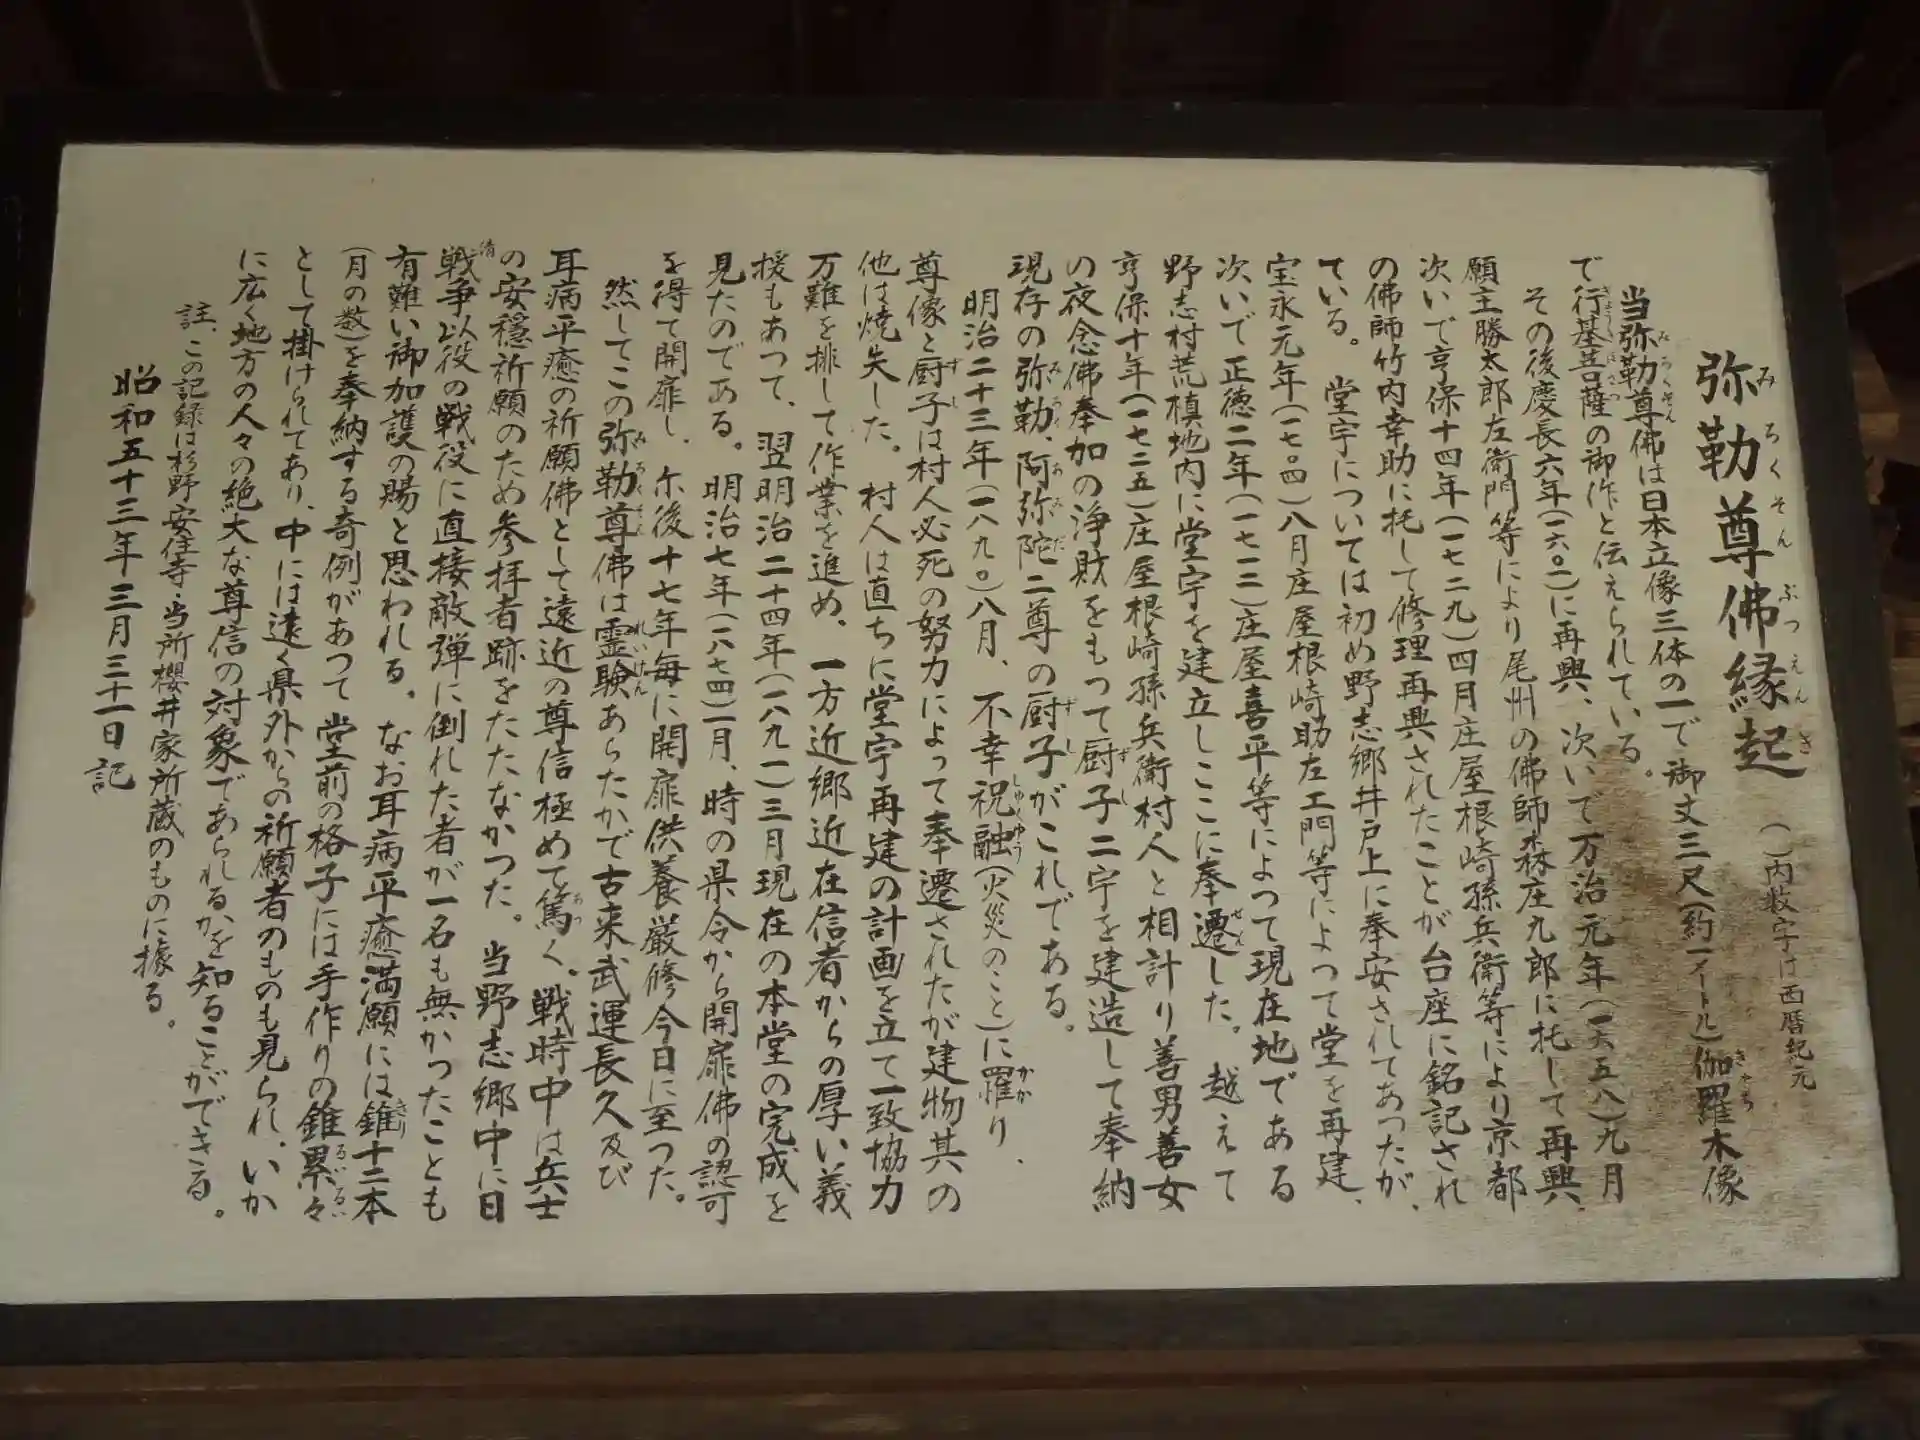 弥勒尊佛縁起 （）内数字は西暦紀元
当弥勒尊佛は日本立像三体の一で御丈三尺（約一メートル）伽羅木像
で行基菩薩の御作と伝えられている。
その後慶長六年（一六〇一）に再興、次いで万治元年（一六五八）九月
願主勝太郎左衛門等により尾州の佛師森庄九郎に托して再興、
次いで享保十四年（一七二九）四月庄屋根崎孫兵衛等により京都
の佛師竹内幸助に托して修理再興されたことが台座に銘記され
ている。　堂宇については初め野志郷井戸上に奉安されてあつたが、
宝永元年（一七〇四）八月庄屋根崎助左エ門等によつて堂を再建、
次いで正徳二年（一七一二）庄屋喜平等によつて現在地である
野志村荒槙地内に堂宇を建立しここに奉遷した。　越えて
享保十年（一七二五）庄屋根崎孫兵衛村人と相計り善男善女
の夜念佛奉加の浄財をもつて厨子二宇を建造して奉納
現存の弥勒、阿弥陀二尊の厨子がこれである。
明治二十三年（一八九〇）八月、不幸祝融（火災のこと）に罹り、
尊像と厨子は村人必死の努力によって奉遷されたが建物其の
他は焼失した。　村人は直ちに堂宇再建の計画を立て一致協力
万難を排して作業を進め、一方近郷近在信者からの厚い義
援もあつて、翌明治二十四年（一八九一）三月現在の本堂の完成を
見たのである。　明治七年（一八七四）一月、時の県令から開扉佛の認可
を得て開扉し、尓後十七年毎に開扉供養厳修今日に至つた。
然してこの弥勒尊佛は霊験あらたかで古来武運長久及び
耳病平癒の祈願佛として遠近の尊信極めて篤く、戦時中は兵士
の安穏祈願のため参拝者跡をたたなかつた。　当野志郷中に日
清戦争以役の戦役に直接敵弾に倒れた者が一名も無かつたことも
有難い御加護の賜と思われる。　なお耳病平癒満願には錐十二本
（月の数）を奉納する奇例があつて堂前の格子には手作りの錐累々
として掛けられてあり、中には遠く県外からの祈願者のものも見られ、いか
に広く地方の人々の絶大な尊信の対象であられるかを知ることができる。
註、この記録は杉野安住寺・当所櫻井家所蔵のものに據る。
昭和五十三年三月三十一日記